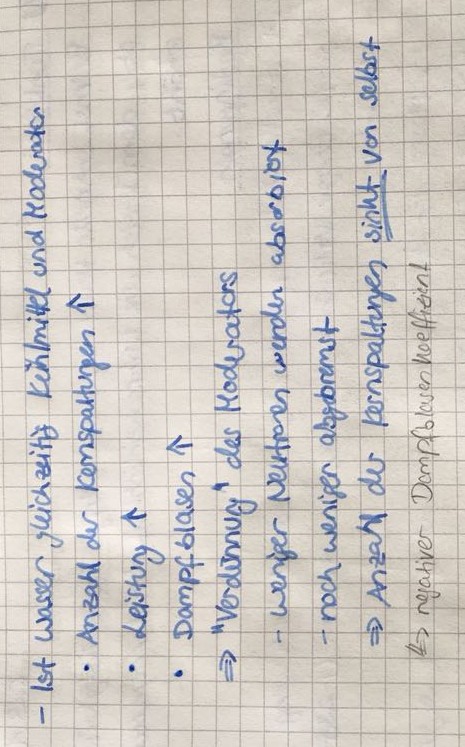 - Ist wasser gleichzeitig Kühlmittel und Moderator
• Anzahl der Kernspaltungen ↑
• Leistung ↑
• Dampfblasen ↑
⇒ "Verdünnung" des Moderators
- weniger Neutronen werden absorbiert
- noch weniger abgebremst
⇒ Anzahl der Kernspaltungen sinkt von selbst
↳ negativer Dampfblasenkoeffizient